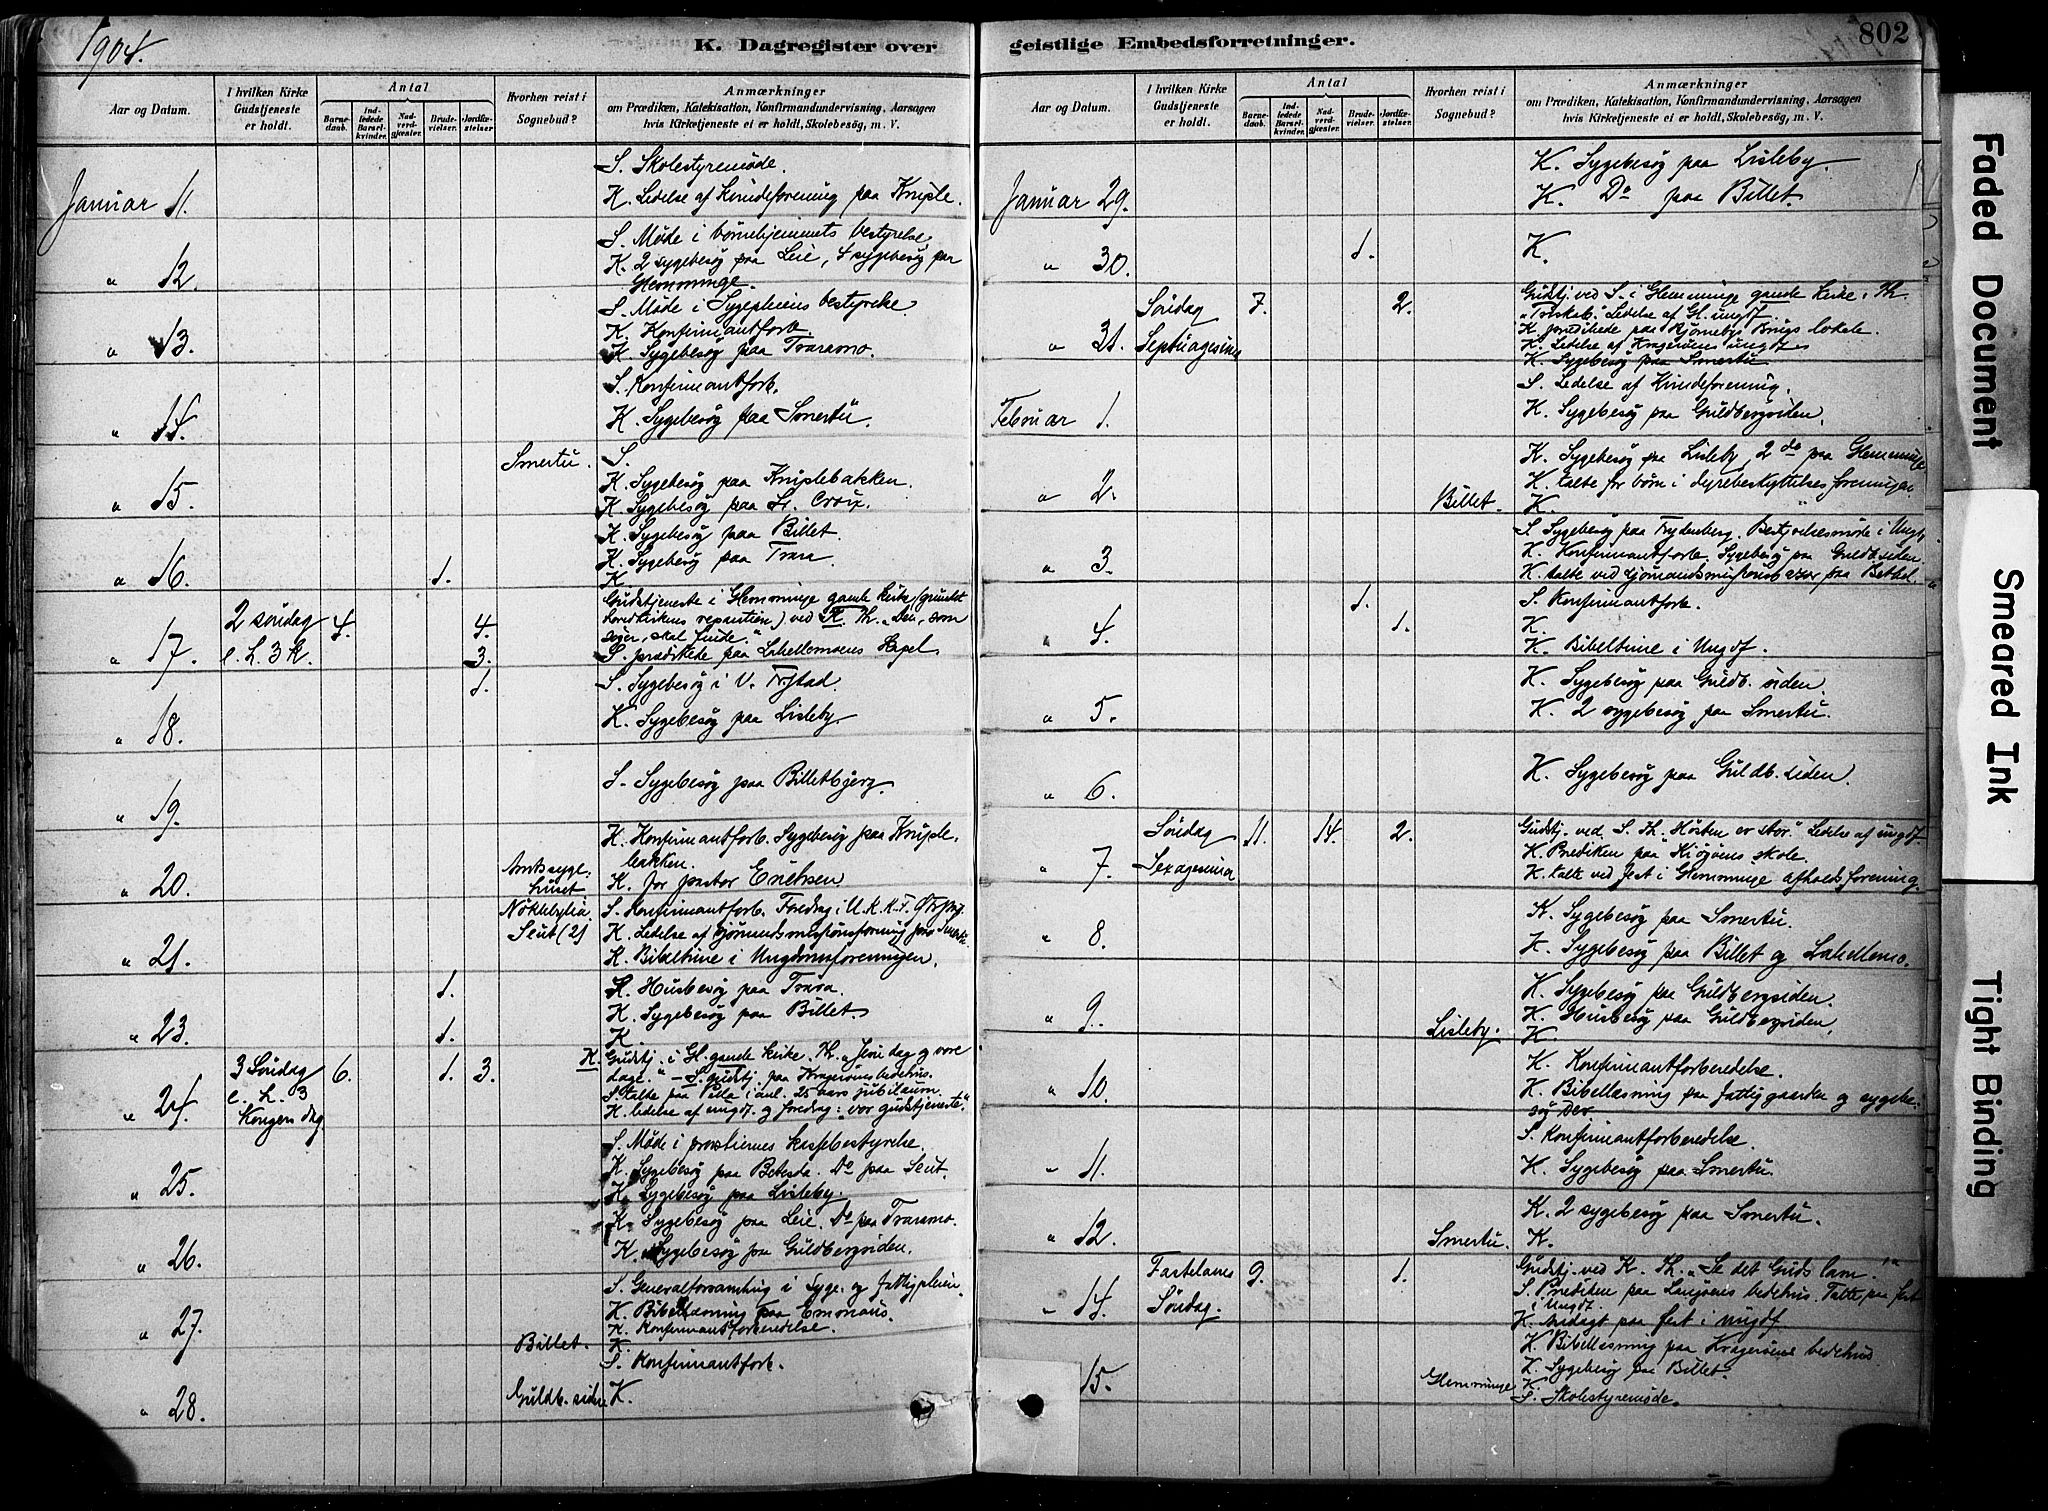 1904.
K. Dagregister over
Aar og Datum.
I hvilken Kirke Gudstjeneste er holdt.
Antal
Barnedaab.
Indledede Barselkvinder.
Nadverdgjester.
Brudevielser.
Jordfæstelser
Hvorhen reist i Sognebud?
Anmærkninger
om Prædiken, Katekisation, Konfirmandundervisning, Aarsagen
hvis Kirketjeneste ei er holdt, Skolebesøg, m. V.
S. Skolestyremøde.
Januar 11. K. Ledelse af kvindeforening paa Kniple.
S. Møde i børnehjemmets bestyrelse
K. 2 sygebesøg paa Leie, 4 sygebesøg paa
" 12. Glemminge.
S. Møde i Sygepleiens bestyrelse.
K. Konfirmantforb.
" 13. K. Sygebesøg paa Traramo.
S. Konfirmantforb.
" 14. K. Sygebesøg paa Smertu.
Smertu. S.
K. Sygebesøg paa Kniplebakken.
" 15. K. Sygebesøg paa St. Croix.
K. Sygebesøg paa Billet.
K. Sygebesøg paa Trara.
" 16. 1. K.
Gudstjeneste i Glemminge gamle kirke (grundet
2 søndag 4. 4. hovedkirkens reparation) ved K. Th. "Den, som
søger, skal finde."
" 17. e. H. 3 K. 3. S. prædikede paa Lahellemoens Kapel.
1. S. Sygebesøg i V. Fr.stad.
" 18. K. Sygebesøg paa Lisleby
" 19. S. Sygebesøg paa Billetbjerg.
K. Konfirmantforb. Sygebesøg paa Kniple-
bakken.
" 20. Amtssygehuset K. for pastor Erichsen
Nøkleby
Seut (2) S. Konfirmantforb. Foredrag i U.K.
K. Ledelse af sjømandsmissionsforening paa Smertu.
" 21. K. Bibeltime i Ungdomsforeningen.
1. K. Husbesøg paa Trara.
K. Sygebesøg paa Billet.
" 23. 1. K.
3 Søndag 6. 1. 3. K. Gudstj. i Gl. gamle kirke. Th. "Jesu dag og vore
e. H. 3 dage." – S. gudstj. paa Kragerøens bedehus.
S. talte paa i anl. 25 aars jubilæum.
" 24. Kongen dag. K. ledelse af ungdf. og foredrag: "vor gudstjeneste."
S. Møde i provstiernes kassebestyrelse.
K. Sygebesøg paa Betesda. Do paa Seut.
" 25. K. Sygebesøg paa Lisleby.
K. Sygebesøg paa Leie. Do paa Traramo.
" 26. K. Sygebesøg paa Guldbergsiden.
S. Generalforsamling i Syge- og fattigpleien.
K. Bibellæsning paa Emmaus.
K. Konfirmantforberedelse.
" 27. Billet. K.
S. Konfirmantforb.
" 28. Guldb. siden K.
geistlige Embedsforretninger.
802
Aar og Datum.
I hvilken Kirke Gudstjeneste er holdt.
Antal
Barnedaab.
Indledede Barselkvinder.
Nadverdgjester.
Brudevielser.
Jordfæstelser.
Hvorhen reist i Sognebud?
Anmærkninger
om Prædiken, Katekisation, Konfirmandundervisning, Aarsagen
hvis Kirketjeneste ei er holdt, Skolebesøg, m. V.
K. Sygebesøg paa Lisleby.
Januar 29. K. Do paa Billet.
" 30. 1. K.
Søndag 7. 2. Gudstj. ved S. i Glemminge gamle kirke. Th.
"Troskab." Ledelse af Gl. ungdf.
K. prædikede paa Bjørneby Brugs lokale.
K. Ledelse af Kragerøens ungdf.
" 31. Septuagesima K. Sygebesøg paa Smertu
S. Ledelse af Kvindeforening.
Februar 1. K. Sygebesøg paa Guldbergsiden.
K. Sygebesøg paa Lisleby, 2 do paa Glemminge
K. talte for børn i dyrebeskyttelsesforeningen.
" 2. Billet. K.
S. Sygebesøg paa Frydenberg. Bestyrelsesmøde i Ungf.
K. Konfirmantforb. Sygebesøg paa Guldb. siden.
" 3. K. talte ved sjømandsmissions paa Bethel.
1. S. Konfirmantforb.
1. K.
" 4. K. Bibeltime i Ungdf.
K. Sygebesøg paa Guldb. siden.
" 5. K. 2 sygebesøg paa Smertu.
" 6. K. Sygebesøg paa Guldb. siden.
Søndag 11. 14. 2. Gudstj. ved S. Th. "Høsten er stor." Ledelse af ungdf.
K. Prædiken paa Kjøøens skole.
" 7. Sexagesima K. talte ved fest i Glemminge afholdsforening.
K. Sygebesøg paa Smertu.
" 8. K. Sygebesøg paa Billet og Lahellemo.
K. Sygebesøg paa Guldbergsiden.
K. Husbesøg paa Guldbergsiden.
" 9. Lisleby. K.
K. Konfirmantforberedelse.
" 10. K. Bibellæsning paa fattiggaarden og sygebe-
søg der
S. Konfirmantforberedelse.
" 11. K. Sygebesøg paa Smertu.
K. 2 sygebesøg paa Smertu.
" 12. Smertu. K.
Fastelavns 9. 1. Gudstj. ved K. Th. "Se det Guds lam!"
" 14. Søndag. S. Prædiken paa Langøens bedehus. Talte paa fest
i Ungdf.
K. medvgt paa fest i ungdf
K. Bibellæsning paa Kragerøens bedehus
K. Sygebesøg paa Billet.
15. Glemminge K.
S. Skolestyremøde.
Faded Document
Smeared Ink
Tight Binding